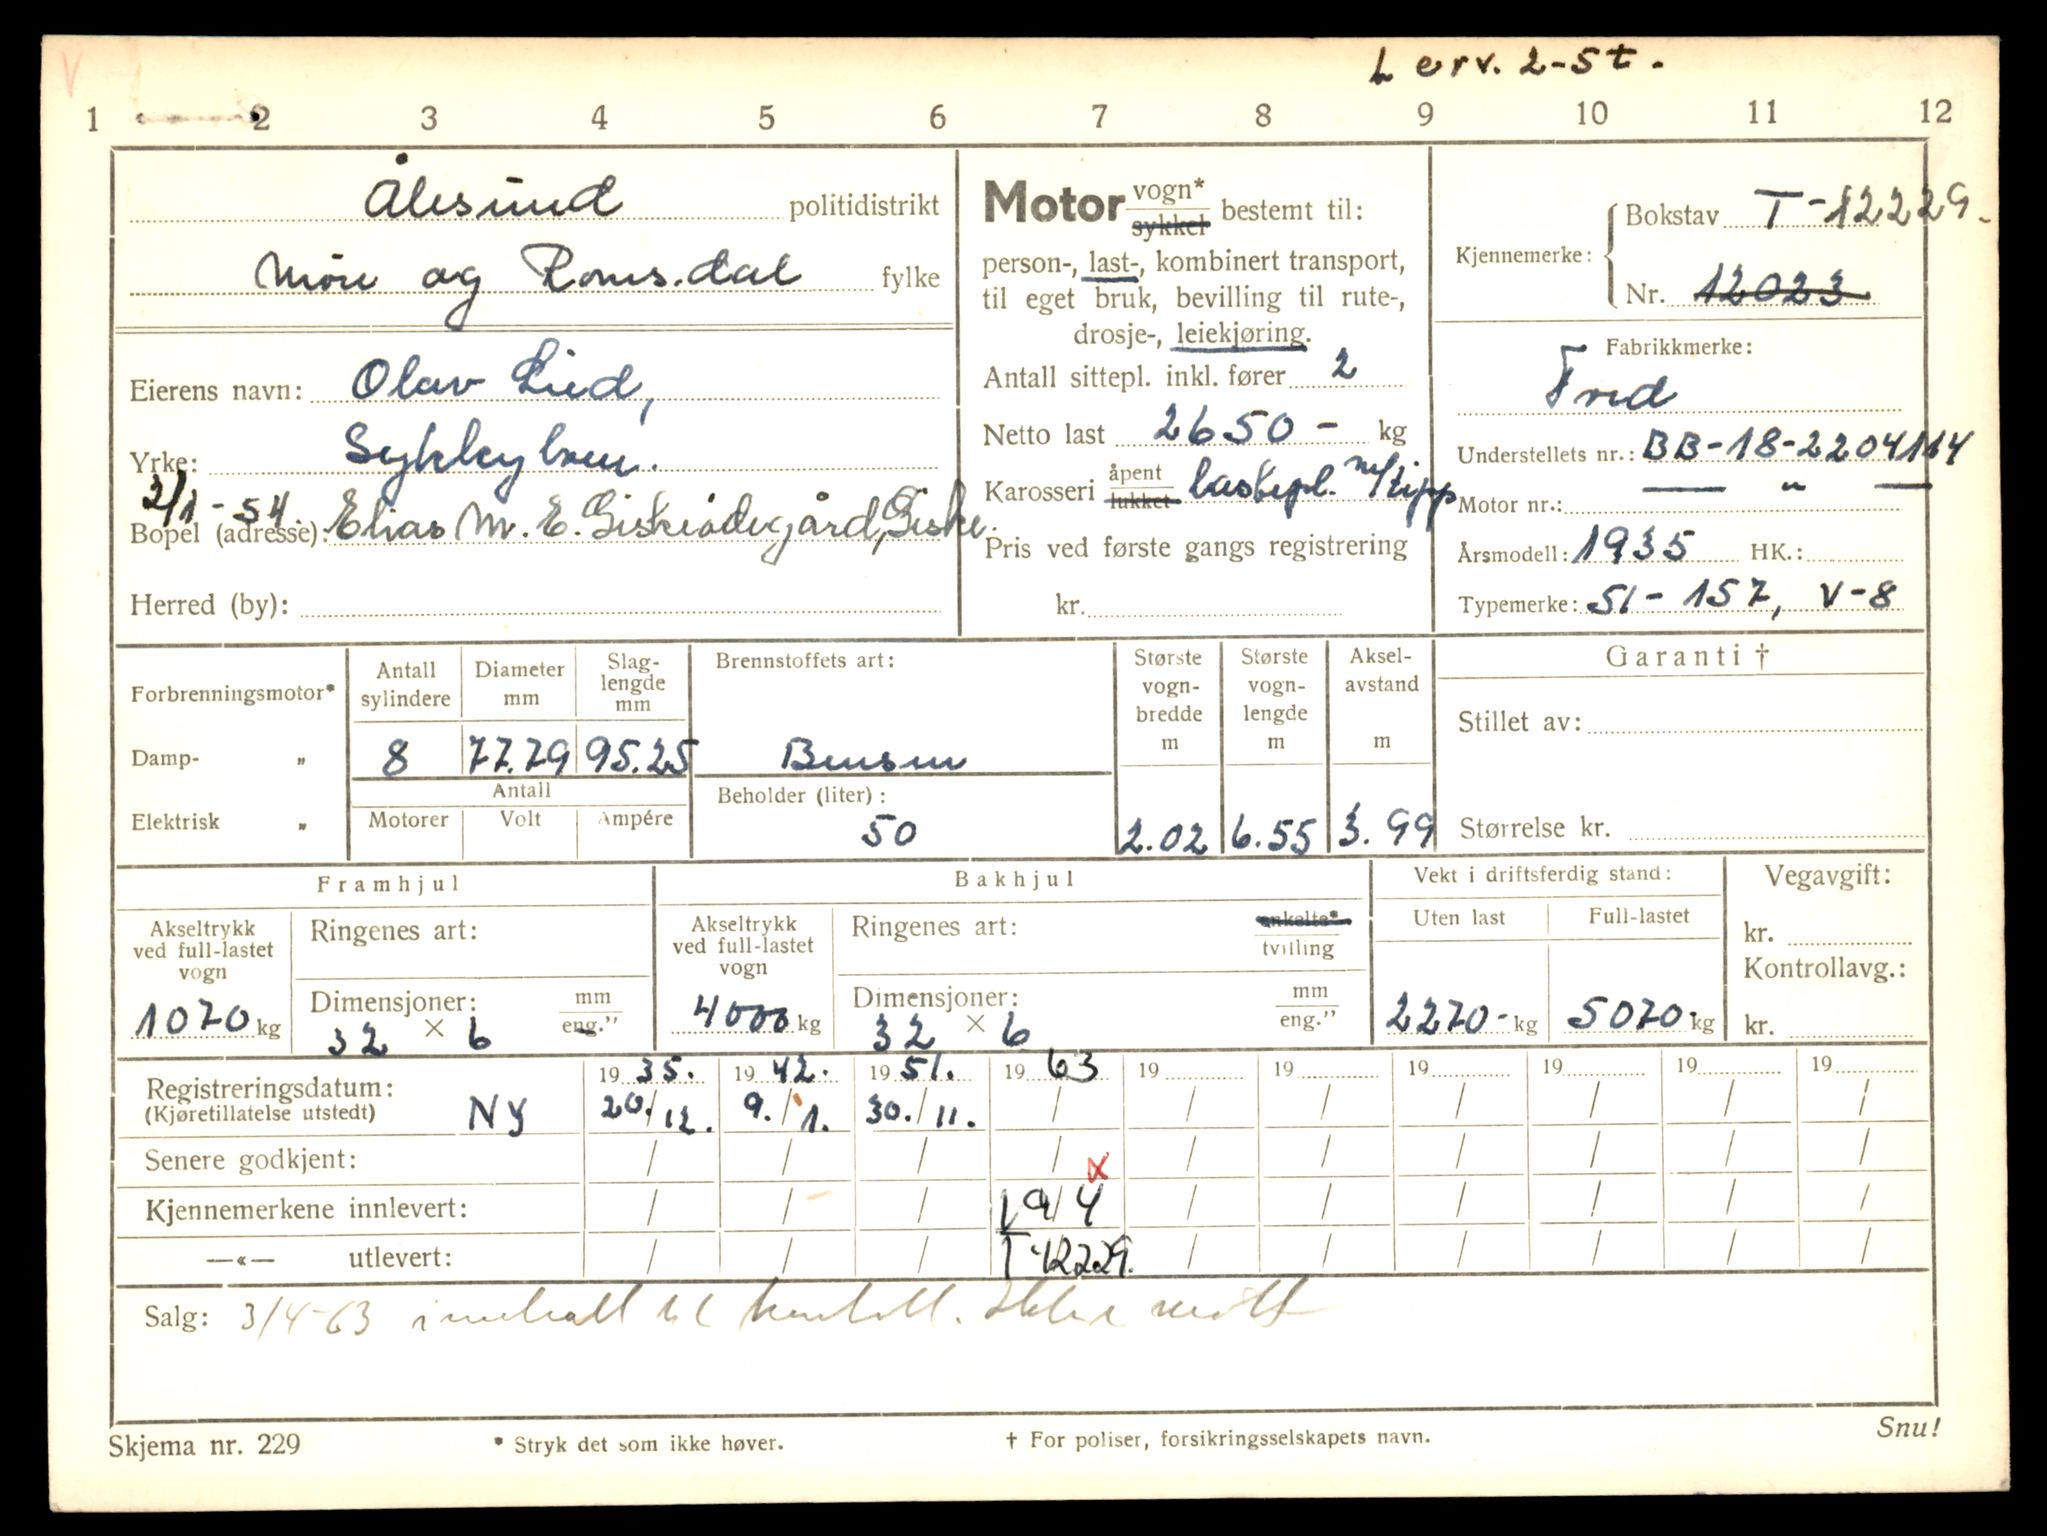 L erv. 2-st.
1 2 3 4 5 6 7 8 9 10 11 12
Ålesund politidistrikt
Møre og Romsdal fylke
Eierens navn: Olav Lied,
Yrke: Sykkylven.
2/1-54.
Bopel (adresse): Elias M. E. Giskeødegård, Giske.
Herred (by):
Motor vogn* sykkel bestemt til:
person-, last-, kombinert transport,
til eget bruk, bevilling til rute-,
drosje-, leiekjøring.
Antall sittepl. inkl. fører 2
Netto last 2650 - kg
Karosseri åpent lukket lastepl. m/tipp
Pris ved første gangs registrering
kr.
Kjennemerke: Bokstav T-12229.
Nr. 12023
Fabrikkmerke:
Ford
Understellets nr.: BB-18-2204164
Motor nr.: — " —
Årsmodell: 1935 HK.:
Typemerke: 51-157, V-8
Forbrenningsmotor*
Damp- „
Elektrisk „
Antall sylindere
8
Diameter mm
77.79
Slag-lengde mm
95.25
Antall
Motorer Volt Ampére
Brennstoffets art:
Bensin
Beholder (liter):
50
Største vogn-bredde m
2.02
Største vogn-lengde m
6.55
Aksel-avstand m
3.99
Garanti †
Stillet av:
Størrelse kr.
Framhjul
Akseltrykk ved full-lastet vogn
1070 kg
Ringenes art:
Dimensjoner: mm eng."
32 × 6
Bakhjul
Akseltrykk ved full-lastet vogn
4000 kg
Ringenes art: enkelte* tvilling
Dimensjoner: mm eng."
32 × 6
Vekt i driftsferdig stand:
Uten last Full-lastet
2270- kg 5070- kg
Vegavgift:
kr.
Kontrollavg.:
kr.
Registreringsdatum: 19 35. 19 42. 19 51. 19 63 19 19 19 19 19 19
(Kjøretillatelse utstedt) Ny 20./12. 9./1. 30./11. / / / / / / /
Senere godkjent: / / / / / / / / / /
Kjennemerkene innlevert: / / / 9/4 x / / / / / /
—«— utlevert: / / / T-12229. / / / / / /
Salg: 3/4-63 innkalt til kontroll. Ikke møtt
Skjema nr. 229
* Stryk det som ikke høver.
† For poliser, forsikringsselskapets navn.
Snu!